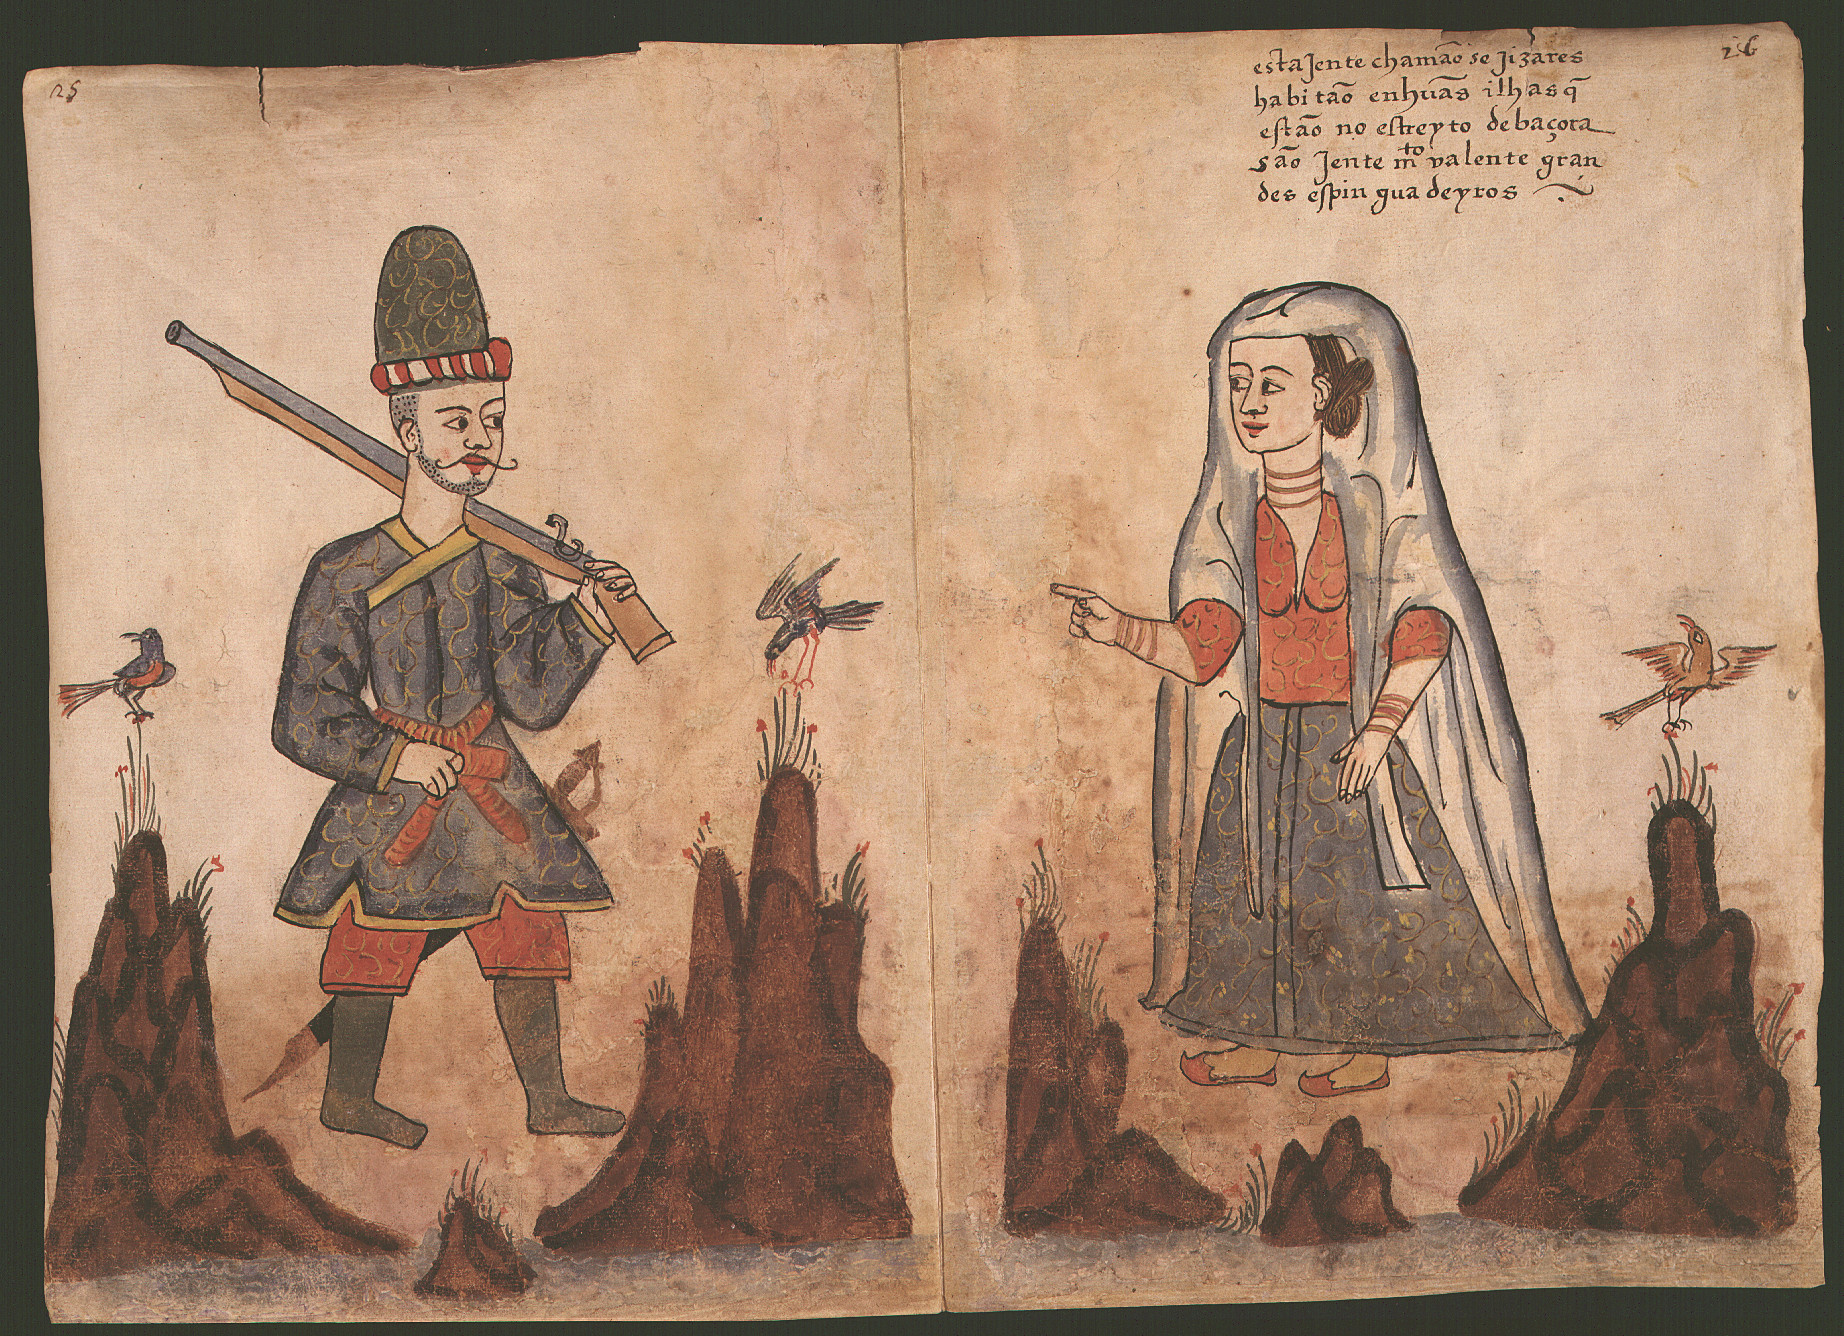 25
26
esta Jente chamão se Jizares
habitão enhuãs ilhas q̃
estão no estreyto debaçora
são Jente mto valente gran
des espinguadeyros